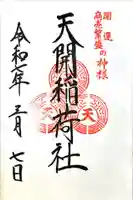 開運
商売繁盛の神様
天開稲荷社
天
令和一年 五月 七日